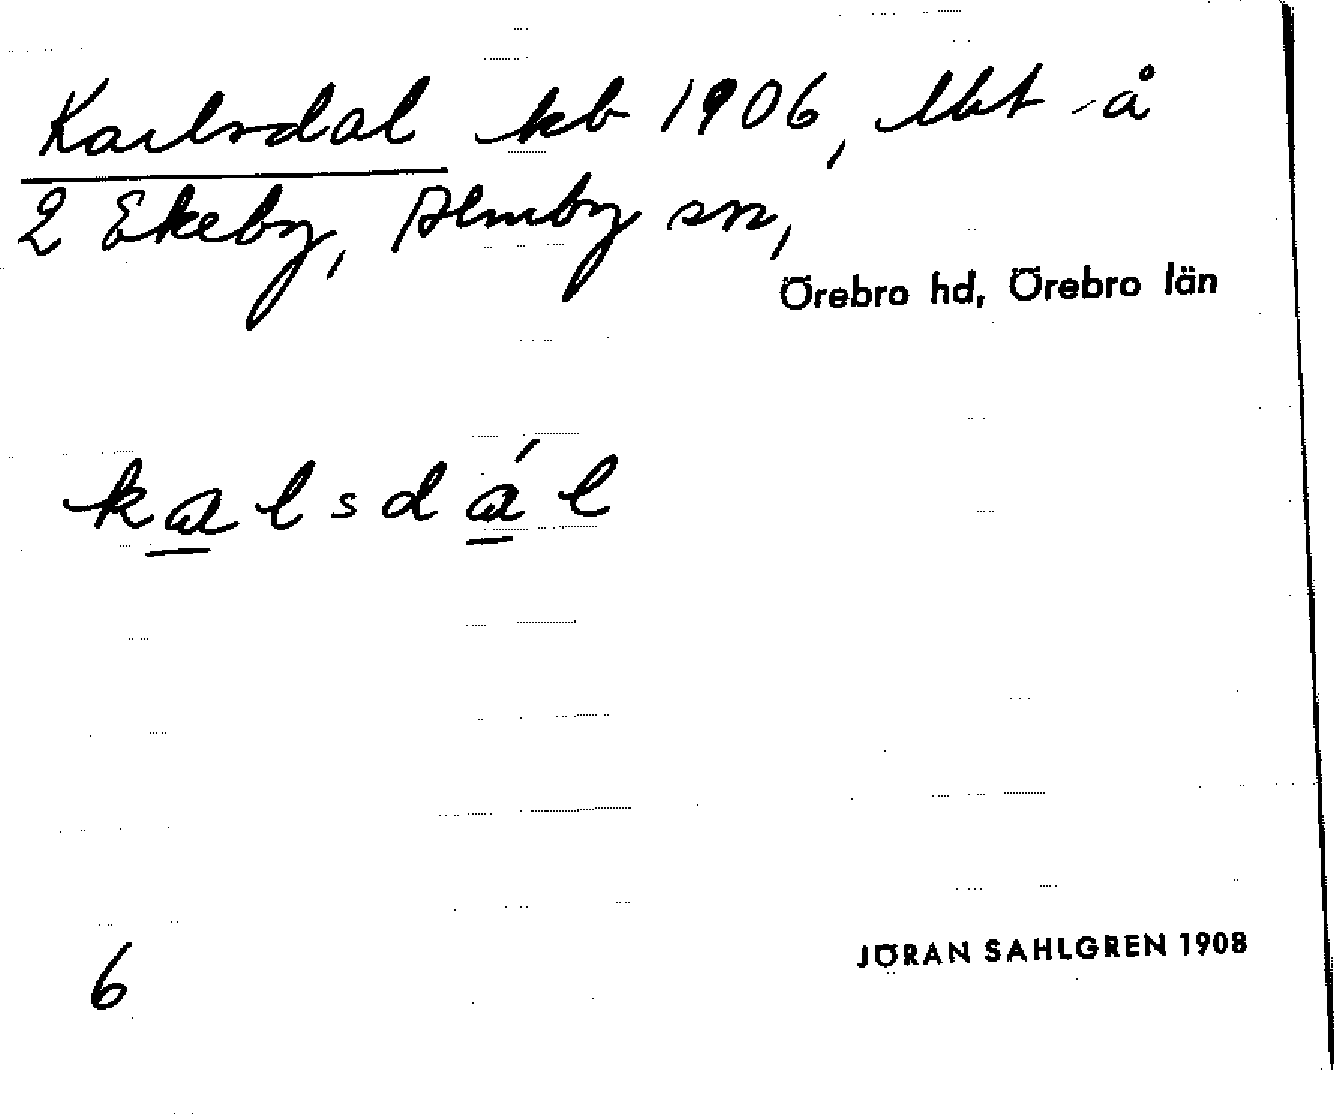 Karlsdal kb 1906, lht å
2 Ekeby, Almby sn,
Örebro hd, Örebro län
kalsdál
6
JÖRAN SAHLGREN 1908